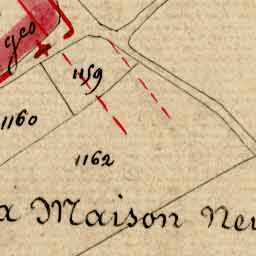 geo
1159
1160
1162
a Maison Neu